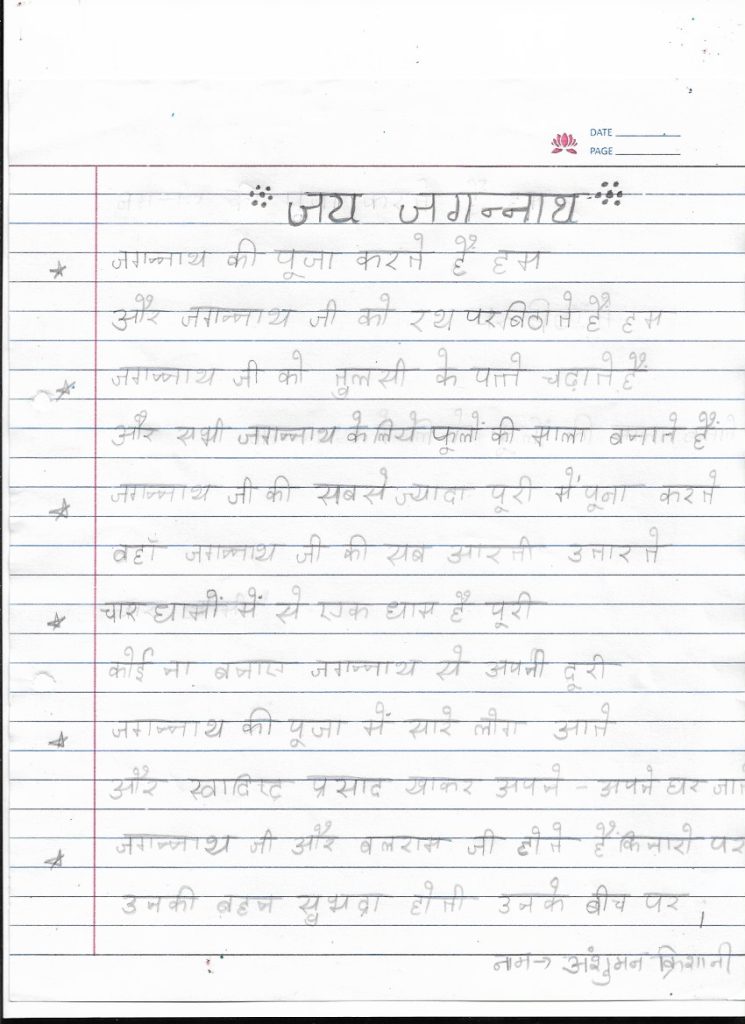 DATE
PAGE
जय जगन्नाथ
जगन्नाथ की पूजा करते हैं हम
और जगन्नाथ जी को रथ पर बिठाते हैं हम
जगन्नाथ जी को तुलसी के पत्ते चढ़ाते हैं
और सभी जगन्नाथ के लिये फूलों की माला बनाते हैं
जगन्नाथ जी की सबसे ज्यादा पूरी में पूजा करते
वहाँ जगन्नाथ जी की सब आरती उतारते
चार धामों में से एक धाम है पूरी
कोई ना बनाए जगन्नाथ से अपनी दूरी
जगन्नाथ की पूजा में सारे लोग आते
और स्वादिष्ट प्रसाद खाकर अपने - अपने घर जाते
जगन्नाथ जी और बलराम जी होते हैं किनारो पर
उनकी बहन सुभद्रा होती उनके बीच पर ।
नाम → अंशुमन क्रिशानी